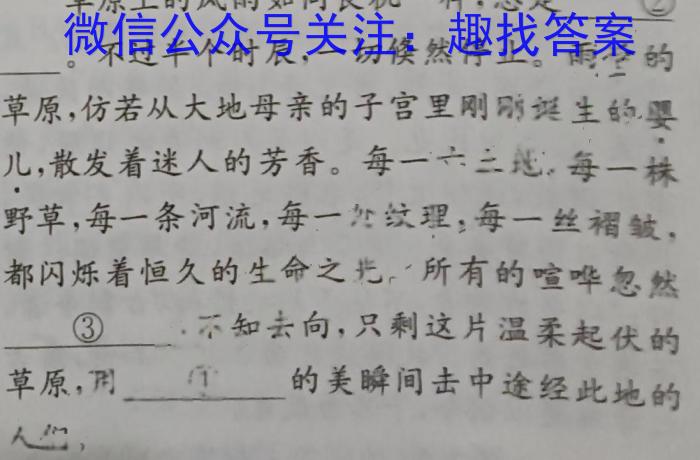 草原上的风雨如同长
微信公众号关注：趣找答案
。不过半个时辰，一切倏然停止。雨 的
草原，仿若从大地母亲的子宫里刚刚诞生的婴
儿，散发着迷人的芳香。每一 土地，每一株
野草，每一条河流，每一 纹理，每一丝褶皱，
都闪烁着恒久的生命之光，所有的喧哗忽然
③ 不知去向，只剩这片温柔起伏的
草原，用 的美瞬间击中途经此地的
人们，